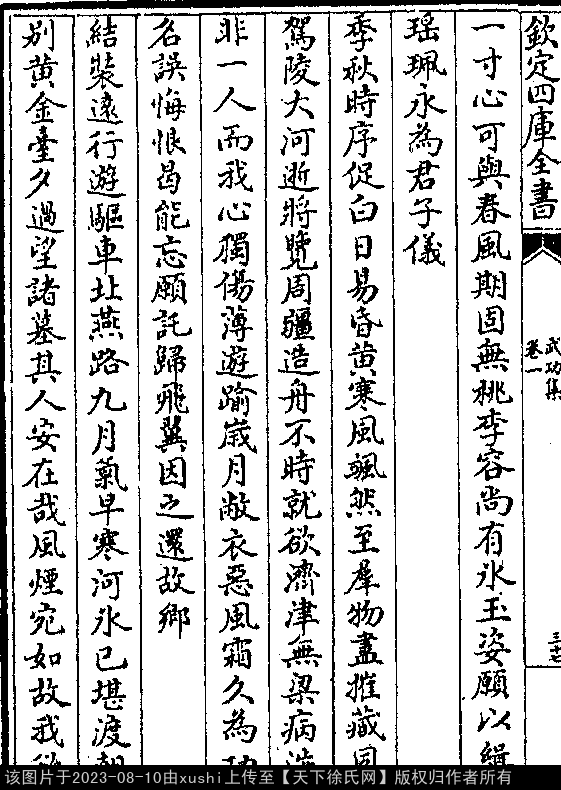 欽定四庫全書
武功集
卷一
三十七
一寸心可與春風期固無桃李容尚有氷玉姿願以緝
瑶珮永為君子儀
季秋時序促白日易昏黄寒風颯然至羣物盡摧藏回
駕陵大河逝將覽周疆造舟不時就欲濟津無梁病涉
非一人而我心獨傷薄遊踰嵗月敝衣惡風霜久為功
名誤悔恨曷能忘願託歸飛翼因之還故鄉
結裝遠行遊驅車北燕路九月氣早寒河氷已堪渡朝
别黄金臺夕過望諸墓其人安在哉風煙宛如故我欲
该图片于2023-08-10由xushi上传至【天下徐氏网】版权归作者所有